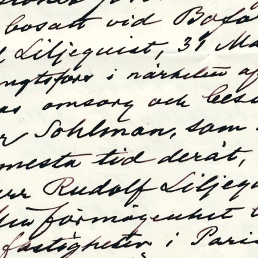 bosatt vid Bofo
Liljequist, 31 Ma
ngtsfors i närheten af
omsorg och bes
Sohlman, som
mesta tid deråt,
Rudolf Liljequ
förmögenhet
fastigheter i Paris